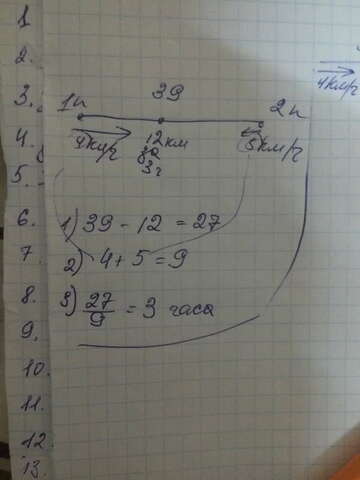 1
2.
3.
4.
5.
6.
7.
8.
9.
10.
11.
12.
13.
39
1п 2п
4км/ч 12км 5км/ч
за
3ч
1) 39 - 12 = 27
2) 4 + 5 = 9
3) 27/9 = 3 часа
4км/ч